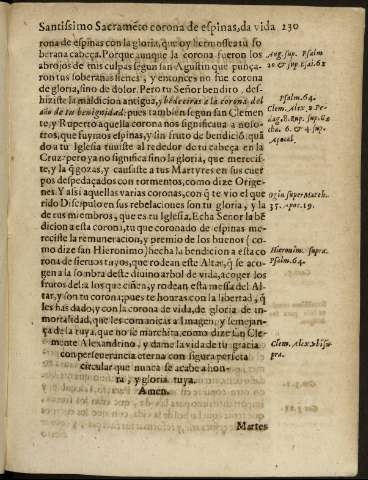 Santissimo Sacramẽto corona de espinas, da vida 230
rona de espinas con la gloria, que oy hermosea tu so
berana cabeça. Porque aunque la corona fueron los
abrojos de mis culpas segun san Agustin que punça-
ron tus soberanas sienes, y entonces no fue corona
de gloria, sino de dolor. Pero tu Señor bendito, des-
hiziste la maldicion antigua, y bẽdeciras a la corona del
año de tu benignidad: pues tambien segun san Clemen
te, y Ruperto aquella corona nos significaua a noso-
tros, que fuymos espinas, y sin fruto de bendiciõ. quã
do a tu Iglesia tuuiste al rededor de tu cabeça en la
Cruz: pero ya no significa sino la gloria, que mereciste,
y la q̃ gozas, y causaste a tus Martyres en sus cuer
pos despedaçados con tormentos, como dize Orige-
nes. Y assi aquellas varias coronas, con q̃ te vio el que
rido Discipulo en sus rebelaciones son tu gloria, y la
de tus miembros, que es tu Iglesia. Echa Señor la bẽ
dicion a esta corona, tu que coronado de espinas me-
reciste la remuneracion, y premio de los buenos (co-
mo dize san Hieronimo) hecha la bendicion a esta co
rona de sieruos tuyos, que rodean este Altar, q̃ se aco-
gen a la sombra deste diuino arbol de vida, acoger los
frutos della: los que ciñen, y rodean esta mesa del Al-
tar, y son tu corona; pues te honras con la libertad, q̃
les has dado, y con la corona de vida, de gloria de in-
mortalidad, que les comunicas a Imagen, y semejan-
ça de la tuya, que no se marchita, como dize san Cle-
mente Alexandrino, y dame la vida de tu gracia
con perseuerancia eterna con figura perfeta
circular que nunca se acabe a hon-
ra, y gloria tuya.
Amen.
Martes
Aug. sup. Psalm
20 & sup. Esai. 62
Psalm. 64.
Clem. Alex. 2. Pe-
dag. 8.
cha. 6. & 4. sup.
Apocal.
Orig. super Matth.
35. Apoc. 19.
Hieronim. supra.
Psalm. 64.
Clem. Alex. vbi su-
pra.